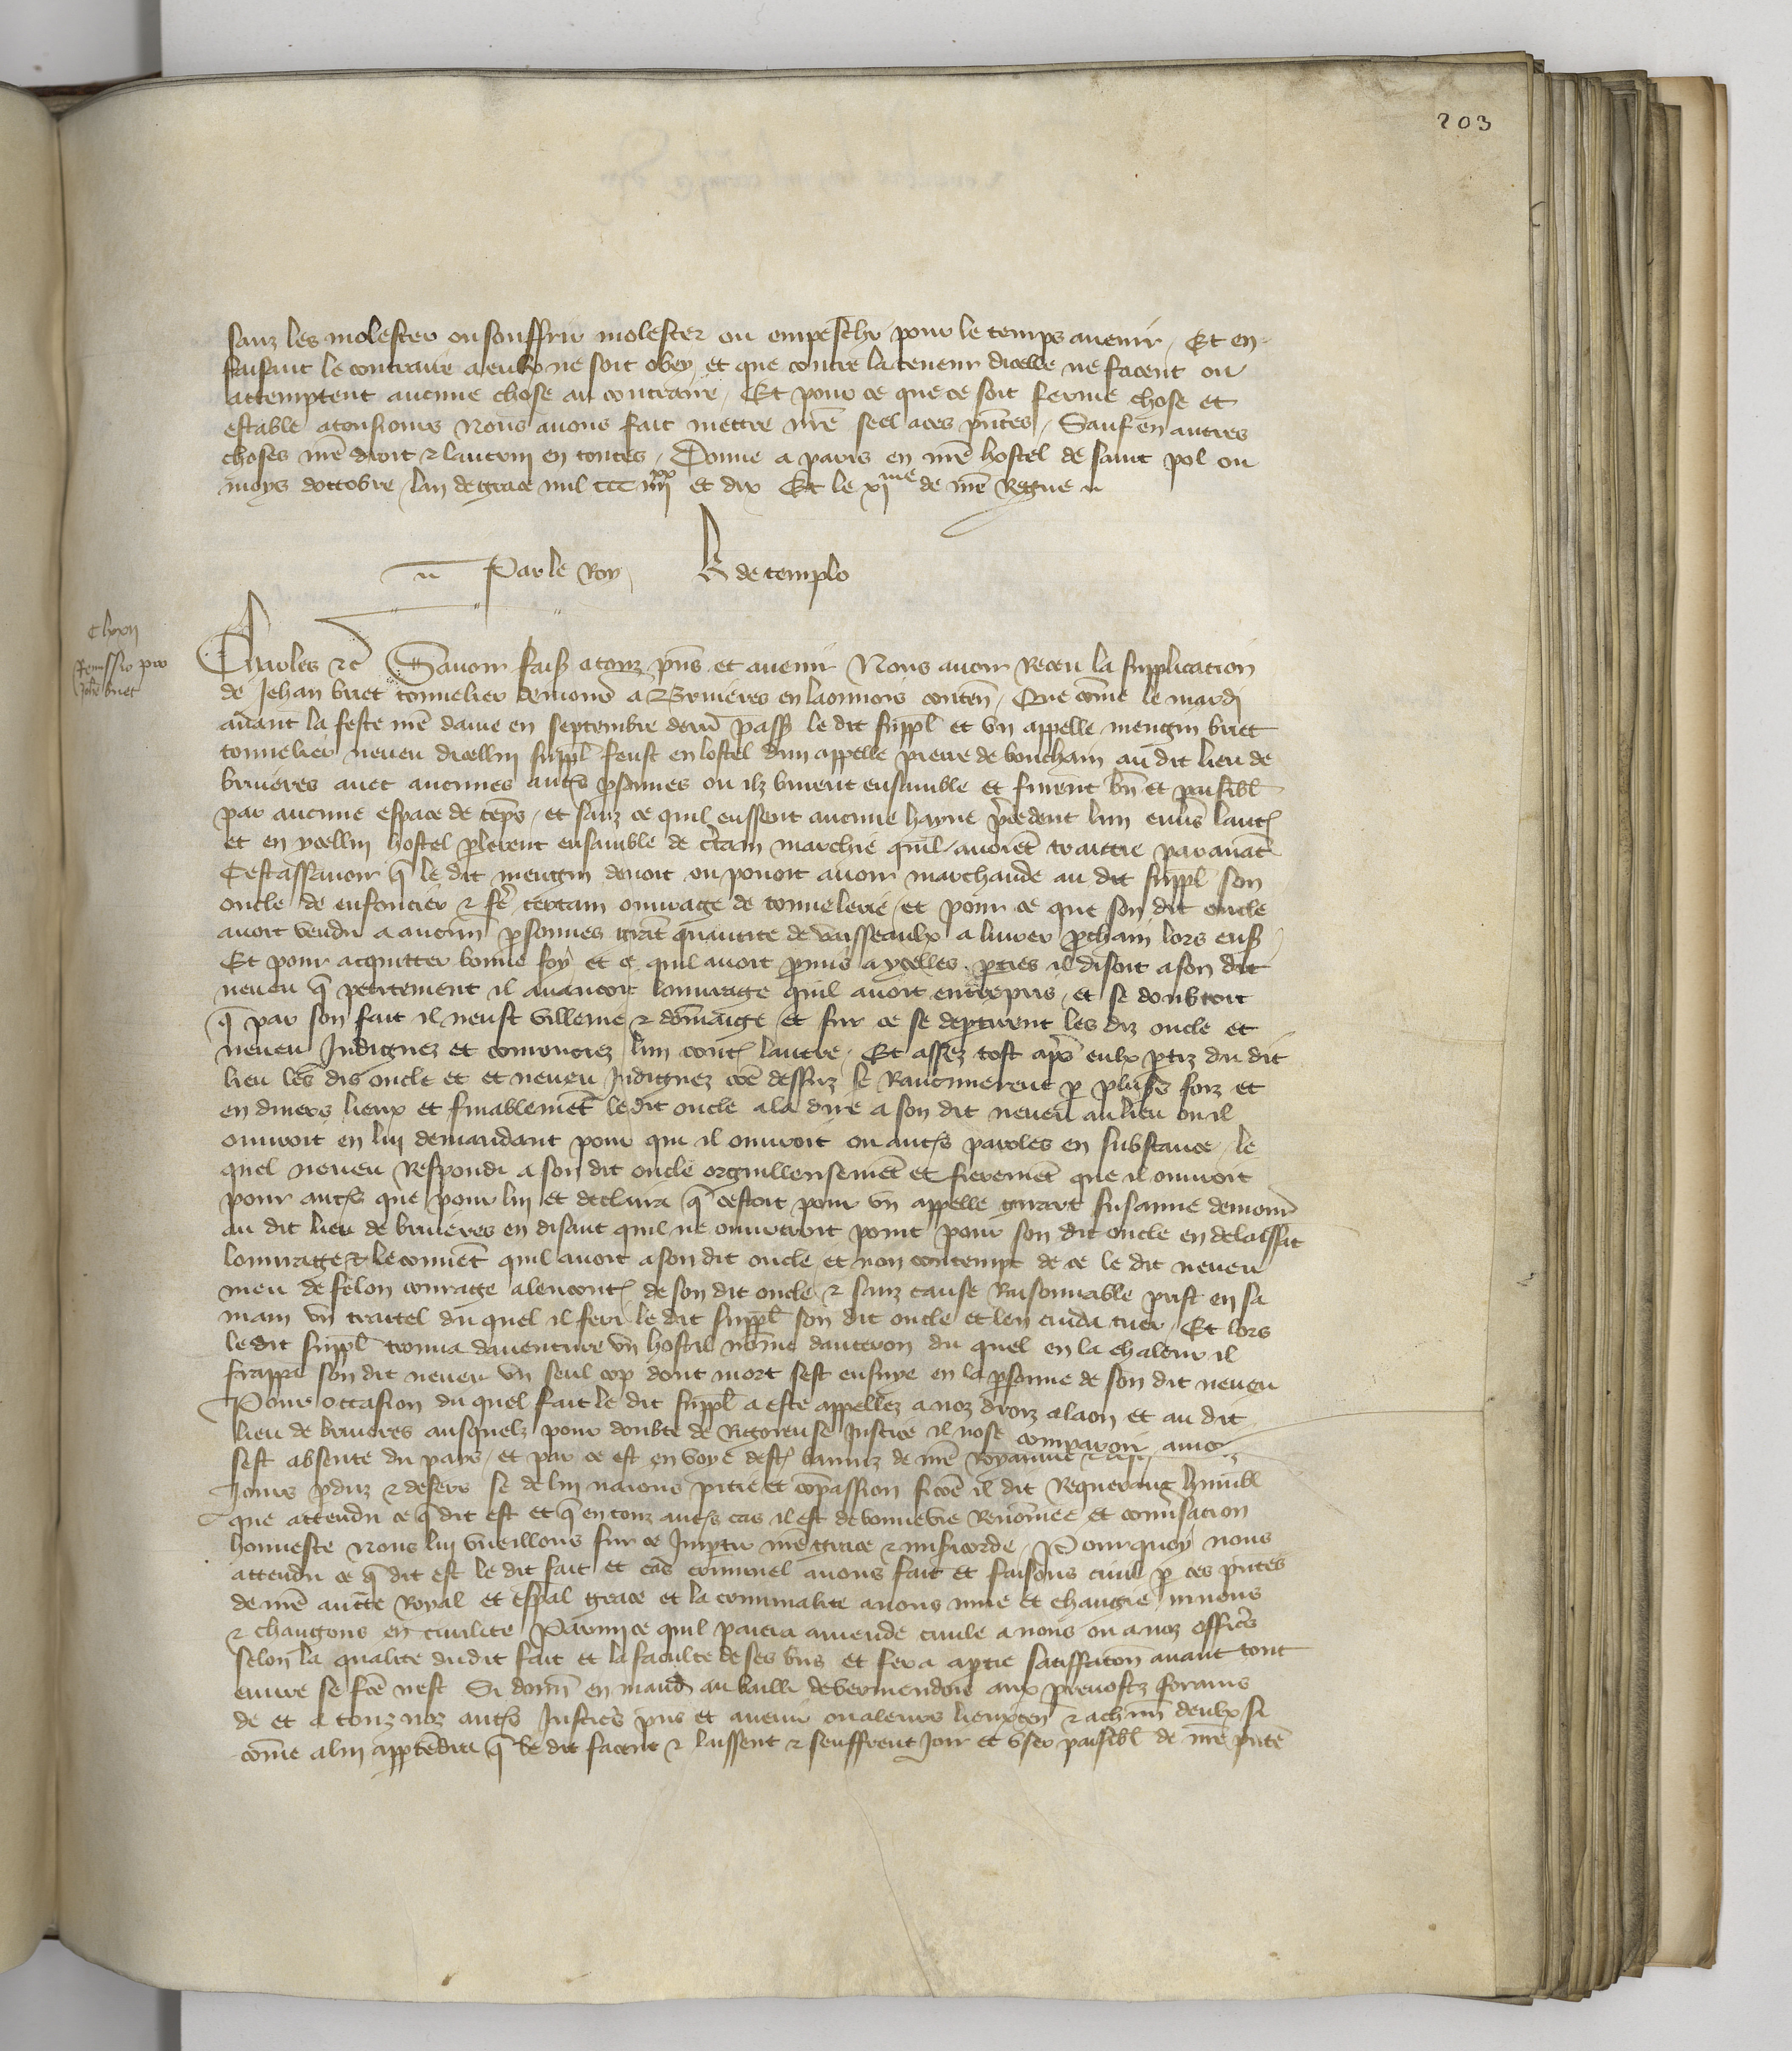 203
sanz les molester ou souffrir molester ou empeschr pour le temps avenir / Et en
faisant le contraire a eulx ne soit obey / et que contre la teneur dicelle ne facent ou
attemptent aucune chose au contraire / Et pour ce que ce soit ferme chose et
estable a tousiours Nous avons fait mettre nre seel a ces pntes / Sauf en autres
choses nre droit & lautruy en toutes / Donne a paris en nre hostel de saint pol ou
moys doctobre lan de grace mil ccc iiii xx et dix Et le xi me de nre Regne
Par le Roy / de templo
c lxxii
Remissio pro
Johe briet
Charles &c Savoir fais a touz pns et avenir Nous avoir Receu la supplicacion
de Jehan briet tonnelier demour a Bruieres en laonnois conten / Que come le mardi
avant la feste nre dame en septembre derr passe le dit suppl et un appelle mengin briet
tonnelier neveu dicellui suppl feust en lostel dun appelle pierre de bouchain au dit lieu de
bruieres avec aucunes autrs psonnes ou ilz burent ensamble et furent bn et paisibl
par aucune espace de teps / et sanz ce quil eussent aucune hayne precedent lun envers laut
et en ycellui hostel plerent ensamble de ctain marchie quil avoiet traictie par avat
Cestassavoir q le dit mengin devoit ou povoit avoir marchande au dit suppl son
oncle de enfoncier & fe certain ouvrage de tonnelerie / et pour ce que son dit oncle
avoit vendu a aucun psonnes grat quantite de vaisseaulx a livrer pchain lors ens
Et pour acquitter bonne foy et ce quil avoit pmis a ycelles pties il disoit a son dit
neveu q petitement il avancoit louvrage quil avoit entrepris / et se doubtoit
q par son fait il neust villenie & domaige et sur ce se deptirent les diz oncle et
neveu Indignez et courouciez lun cont lautre / Et assez tost aps eulx ptiz du dit
lieu les dis oncle et et neveu Indignez coe dessuz se Rancunerent p pluss foiz et
en divers lieux et finablemet le dit oncle ala dire a son dit neveu au lieu ou il
ouvroit en lui demandant pour qui il ouvroit ou auts paroles en substance / le
quel neveu Respondi a son dit oncle orguilleusemet et fieremet que il ouvroit
pour auts que pour lui et declaira q cestoit pour un appelle girart susanne demour
au dit lieu de bruieres en disant quil ne ouvreroit point pour son dit oncle en delaissat
louvrage & le convet quil avoit a son dit oncle et non contempt de ce le dit neveu
meu de felon courage alencont de son dit oncle & sanz cause Raisonnable prist en sa
main un traitel du quel il feri le dit suppl son dit oncle et len cuida tuer / Et lors
le dit suppl trouva daventure un hostil nome dauteron du quel en la chaleur il
frappa son dit neveu un seul cop dont mort sest ensuye en la psonne de son dit neveu
Pour occasion du quel fait le dit suppl a este appellez a noz droiz a laon et au dit
lieu de bruieres ausquelz pour doubte de Rigoreuse Justice il nose comparoir
sest absente du pays / et par ce est en voye dest banniz de nre Royaume &
Jours pduz & desers se de lui navons pitie et copassion sicoe il dit Requerant humbl
que attendu ce q dit est et q en touz auts cas il est de bonne vie Renomee et convsacion
honneste nous lui vueillons sur ce Impartir nre grace & misicorde / Pourquoy nous
attendu ce q dit est le dit fait et cas criminel avons fait et faisons civil p ces pntes
de nre auctte Royal et espal grace et la criminalite avons mue et changie muons
& changons en civilite Parmi ce quil paiera amende civile a nous ou a noz officrs
selon la qualite du dit fait et la faculte de ses bns et fera a ptie satiffaccon avant tout
euvre se fce nest Si donn en mand au bailli de vermendois aux prevostz forains
de et a touz noz auts Justicrs pns et avenir ou a leurs lieuxten & a chun deulx si
come a lui apptendra q le dit facent & laissent & seuffrent Joir et user paisibl de nre pnte